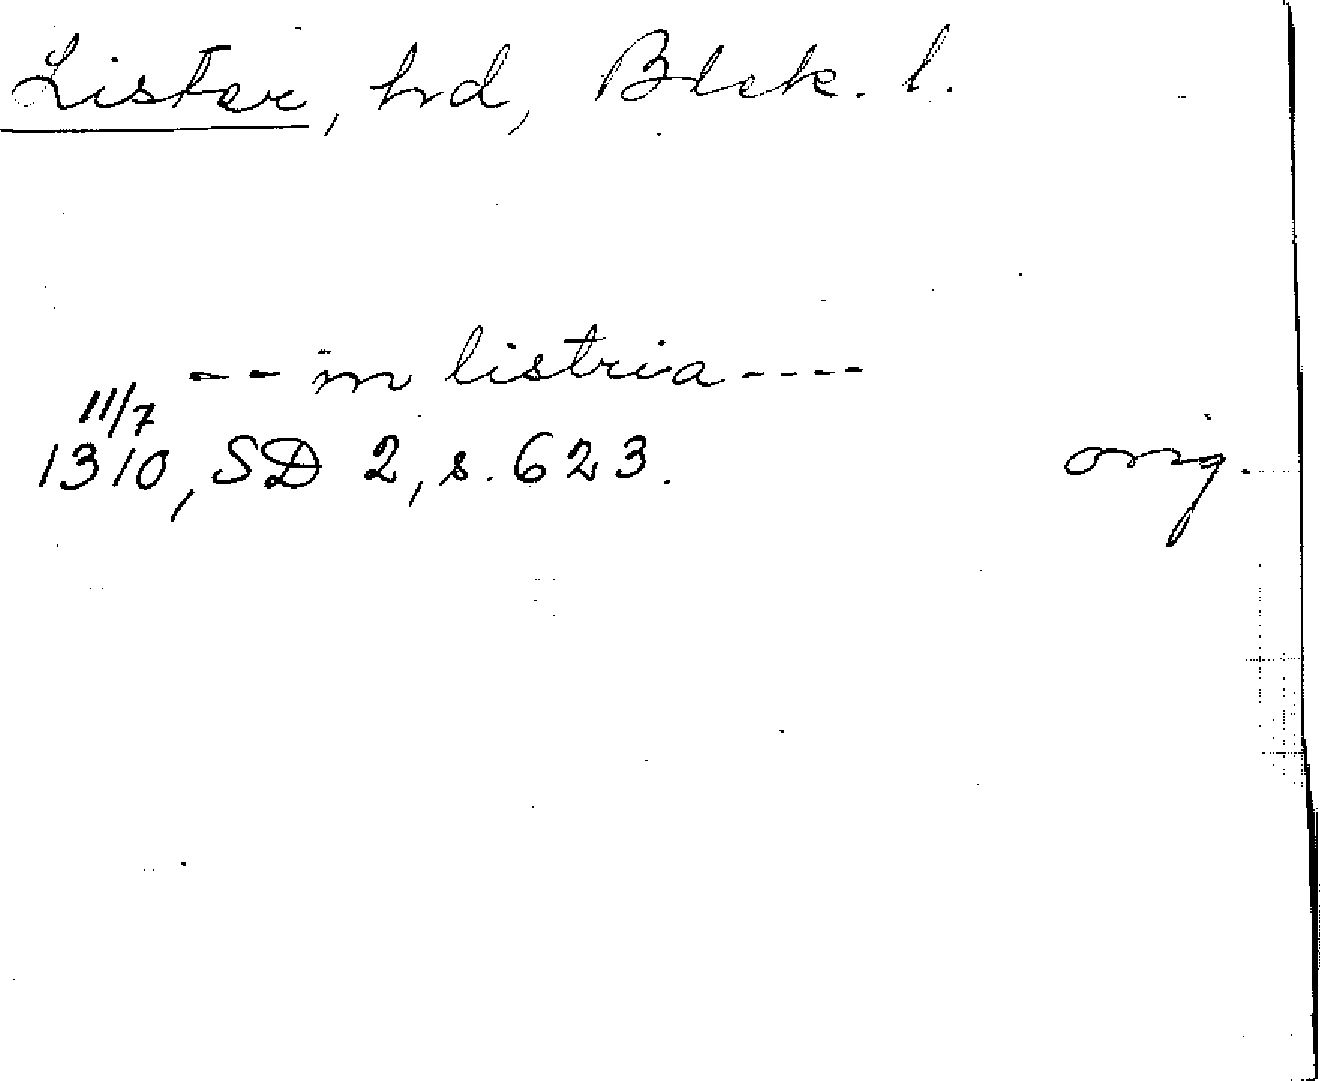 Lister, hd, Blek. l.
-- in listria ----
11/7
1310, SD 2, s. 623. orig.